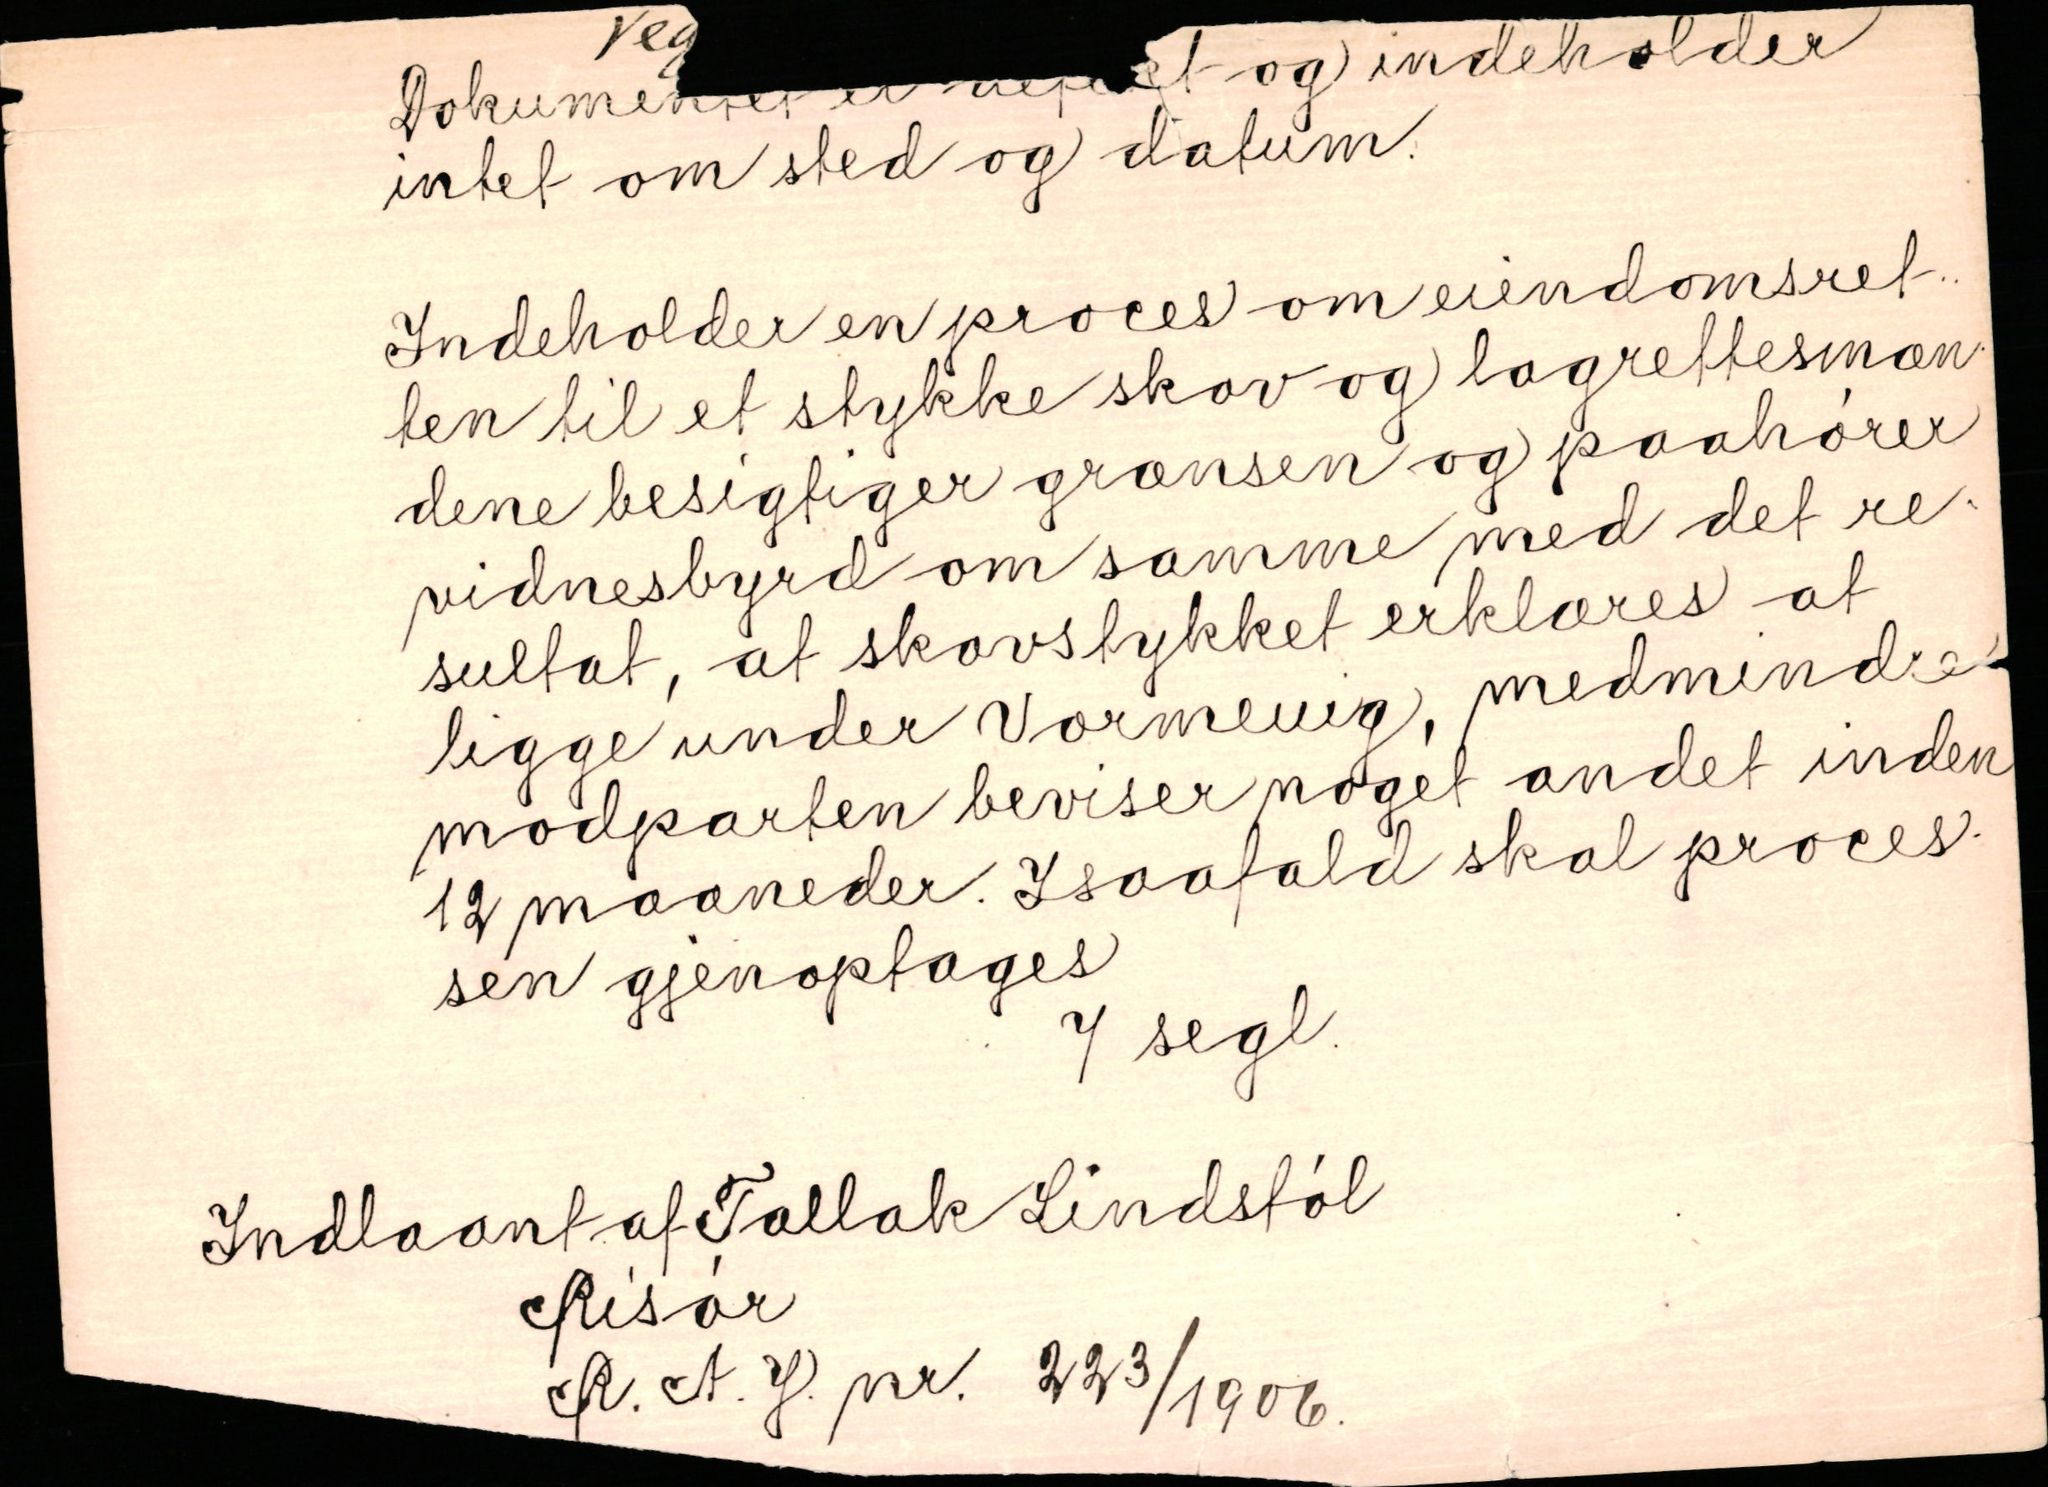 Veg
Dokumentet er defect og indeholder
intet om sted og datum.
Indeholder en proces om eiendomsret-
ten til et stykke skov og lagrettesmæn-
dene besigtiger grænsen og paahórer
vidnesbyrd om samme med det re-
sultat, at skovstykket erklæres at
ligge under Vormeuig, medmindre
modparten beviser noget andet inden
12 maaneder. Isaafald skal proces-
sen gjenoptages
7 segl.
Indlaant af Tallak Lindstól
Risór
R. A. J. nr. 223/1906.